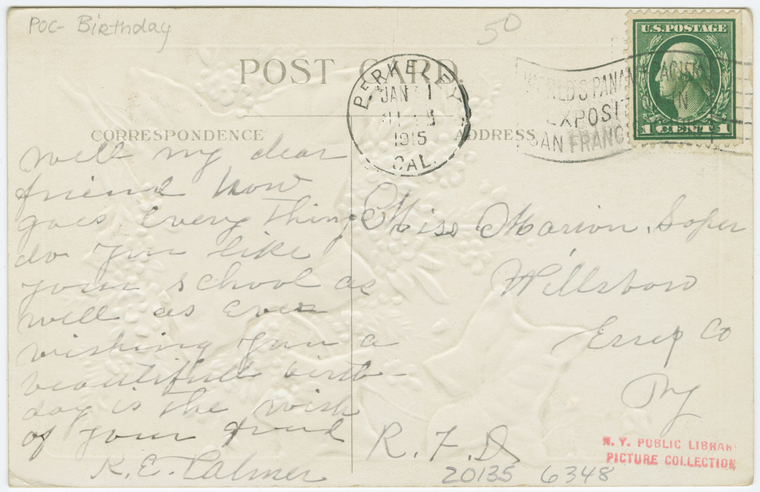 POC- Birthday
50
POST CARD.
BERKELEY
JAN 1
1915
CAL.
WORLD'S PANAMA PACIFIC
EXPOSITION IN
SAN FRANC
U.S. POSTAGE
1 CENT 1
CORRESPONDENCE
well my dear
friend how
goes every thing
do you like
your school as
well as ever
wishing you a
beautifull birth-
day is the wish
of your friend
R.E.
ADDRESS
Miss Marion. Soper
Willsboro
Essex Co
Ny
R.F.D
20135 6348
N. Y. PUBLIC LIBRARY
PICTURE COLLECTION